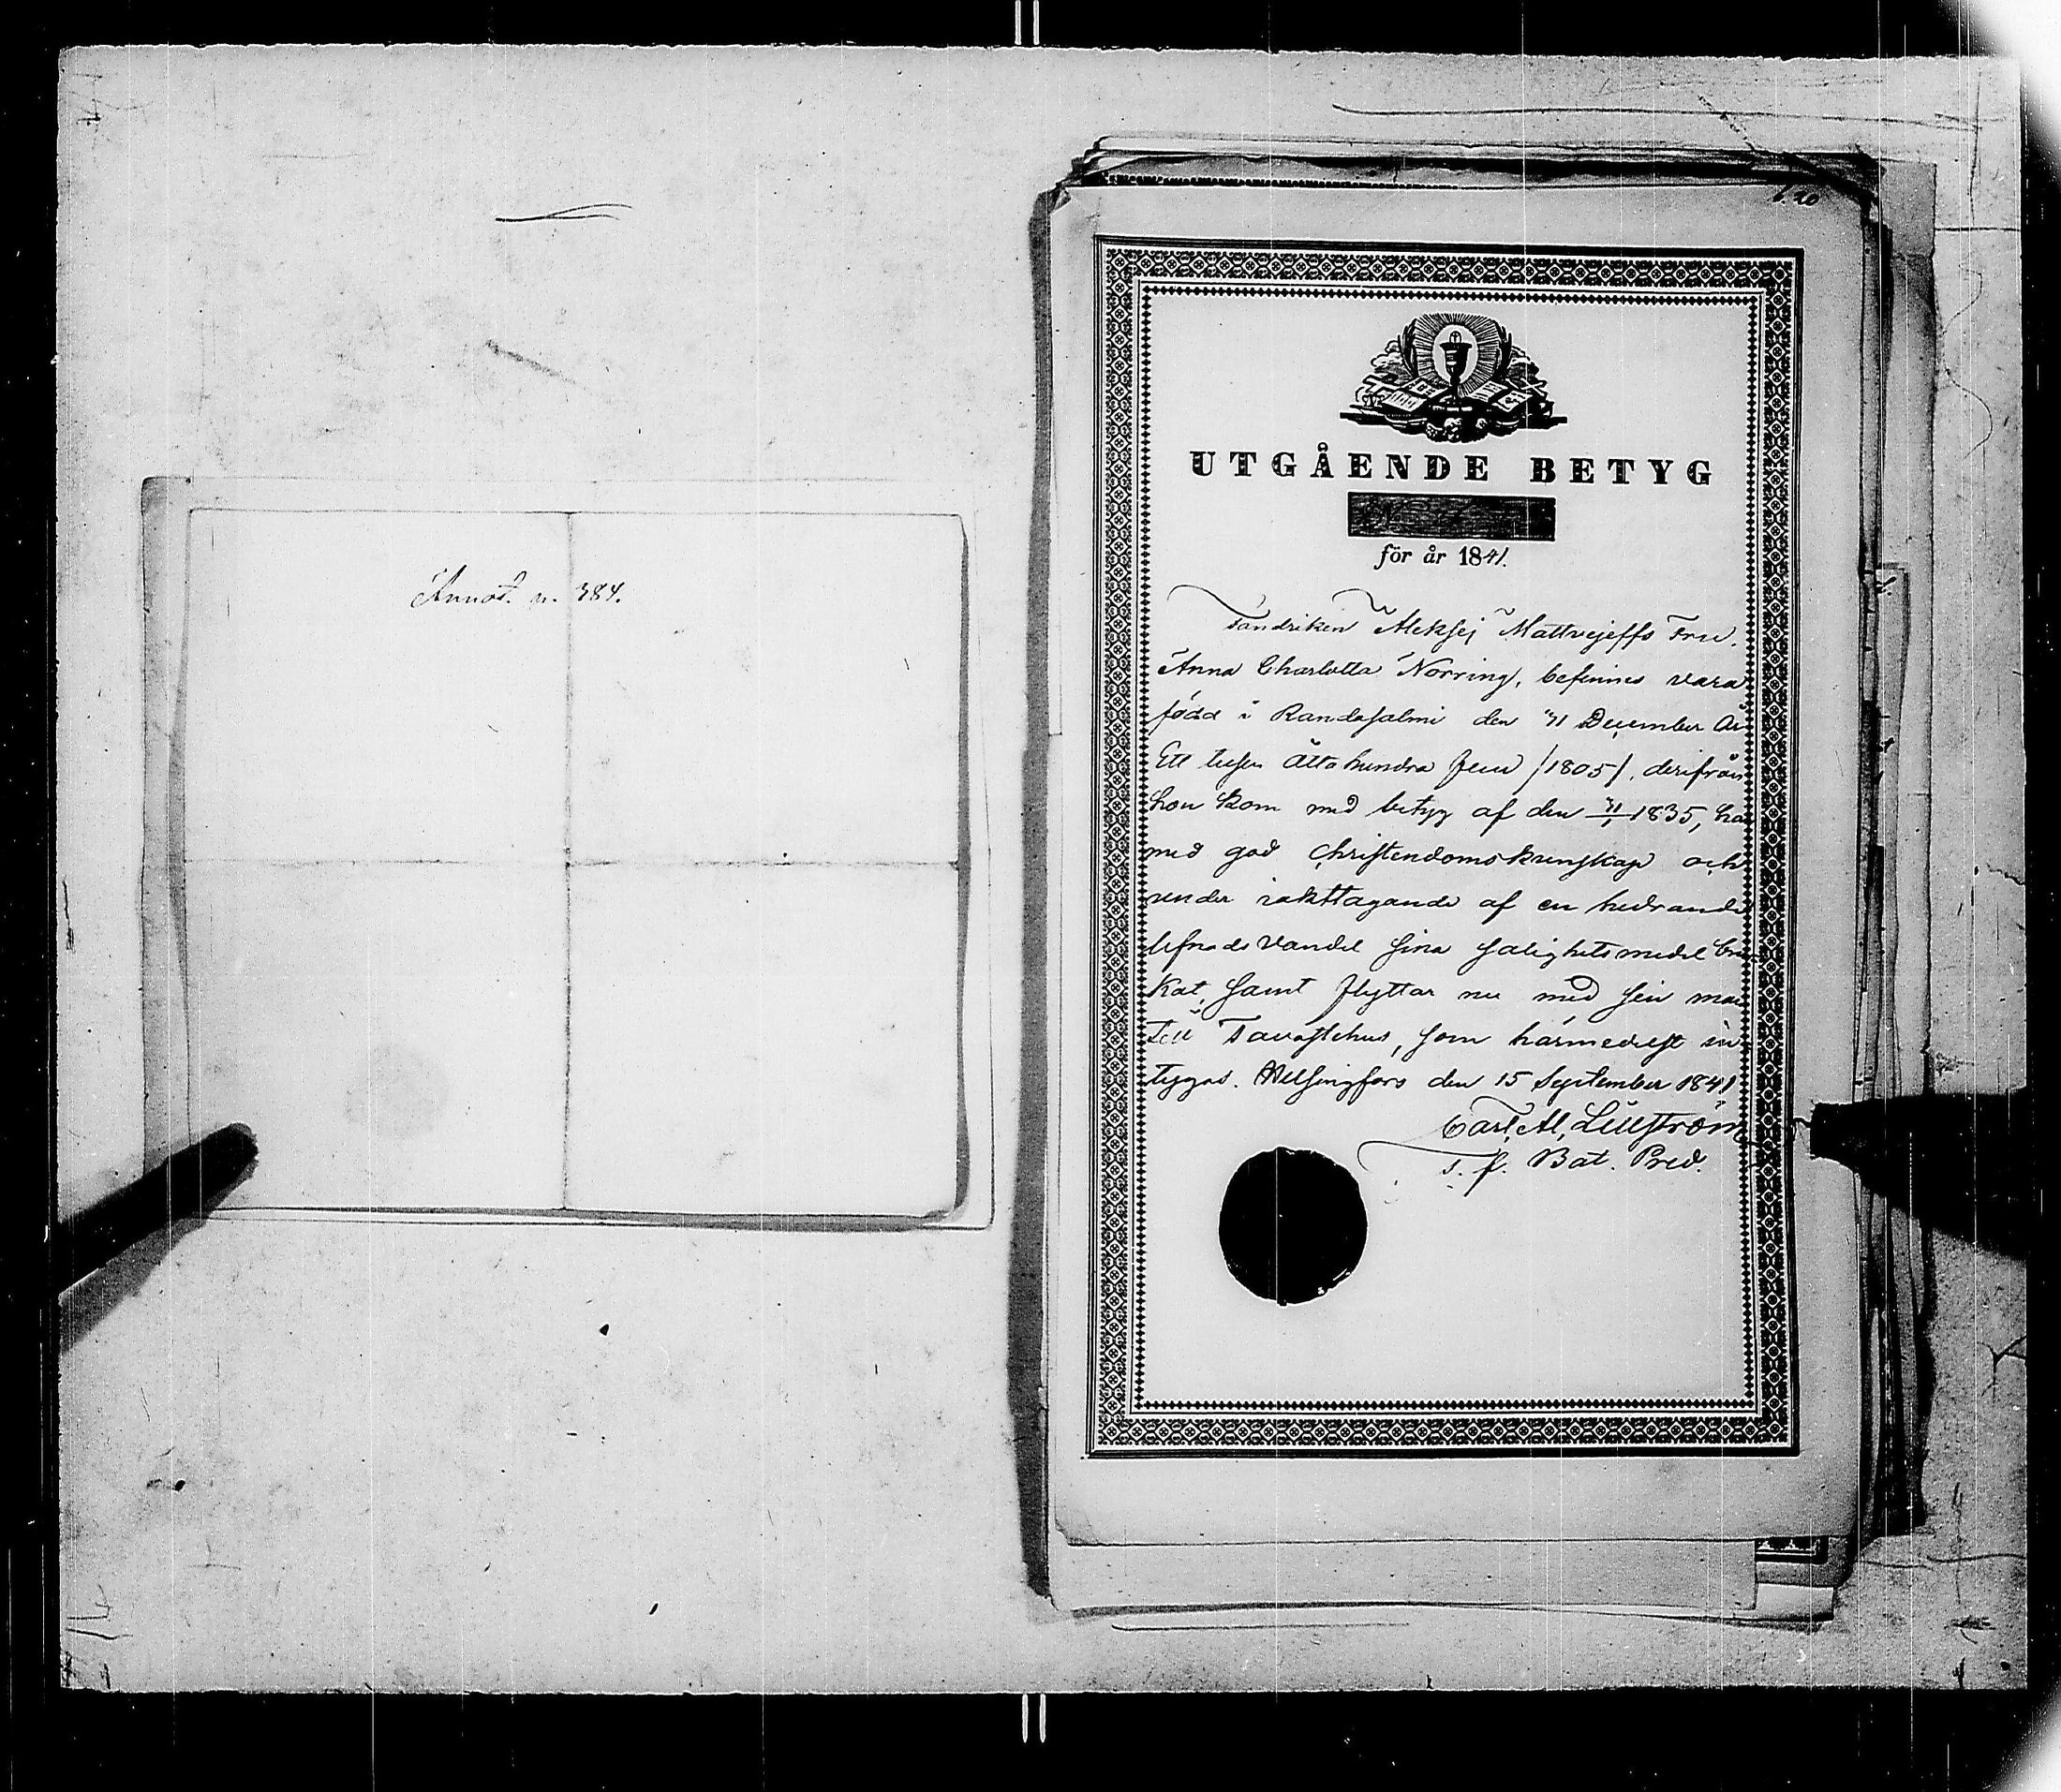 Annot. n. 384.
6. 20
UTGÅENDE BETYG
för år 1841.
Fändriken Aleksej Mattvejeffs Fru.
Anna Charlotta Norring, befinnes vara
född i Randasalmi den 31 December År
Ett tusen Åtta hundra fem /1805/, derifrån
hon kom med betyg af den 1835, ha
med god Christendomskunskap och
under iakttagande af en hedrande
lefnads vandel sina salighetsmedel bru
kat, samt flyttar nu med sin man
till Tavastehus, som härmedelst in
tygas. Helsingfors den 15 September 1841
Carl. Al. Lillström
t. f. Bat. Pred.